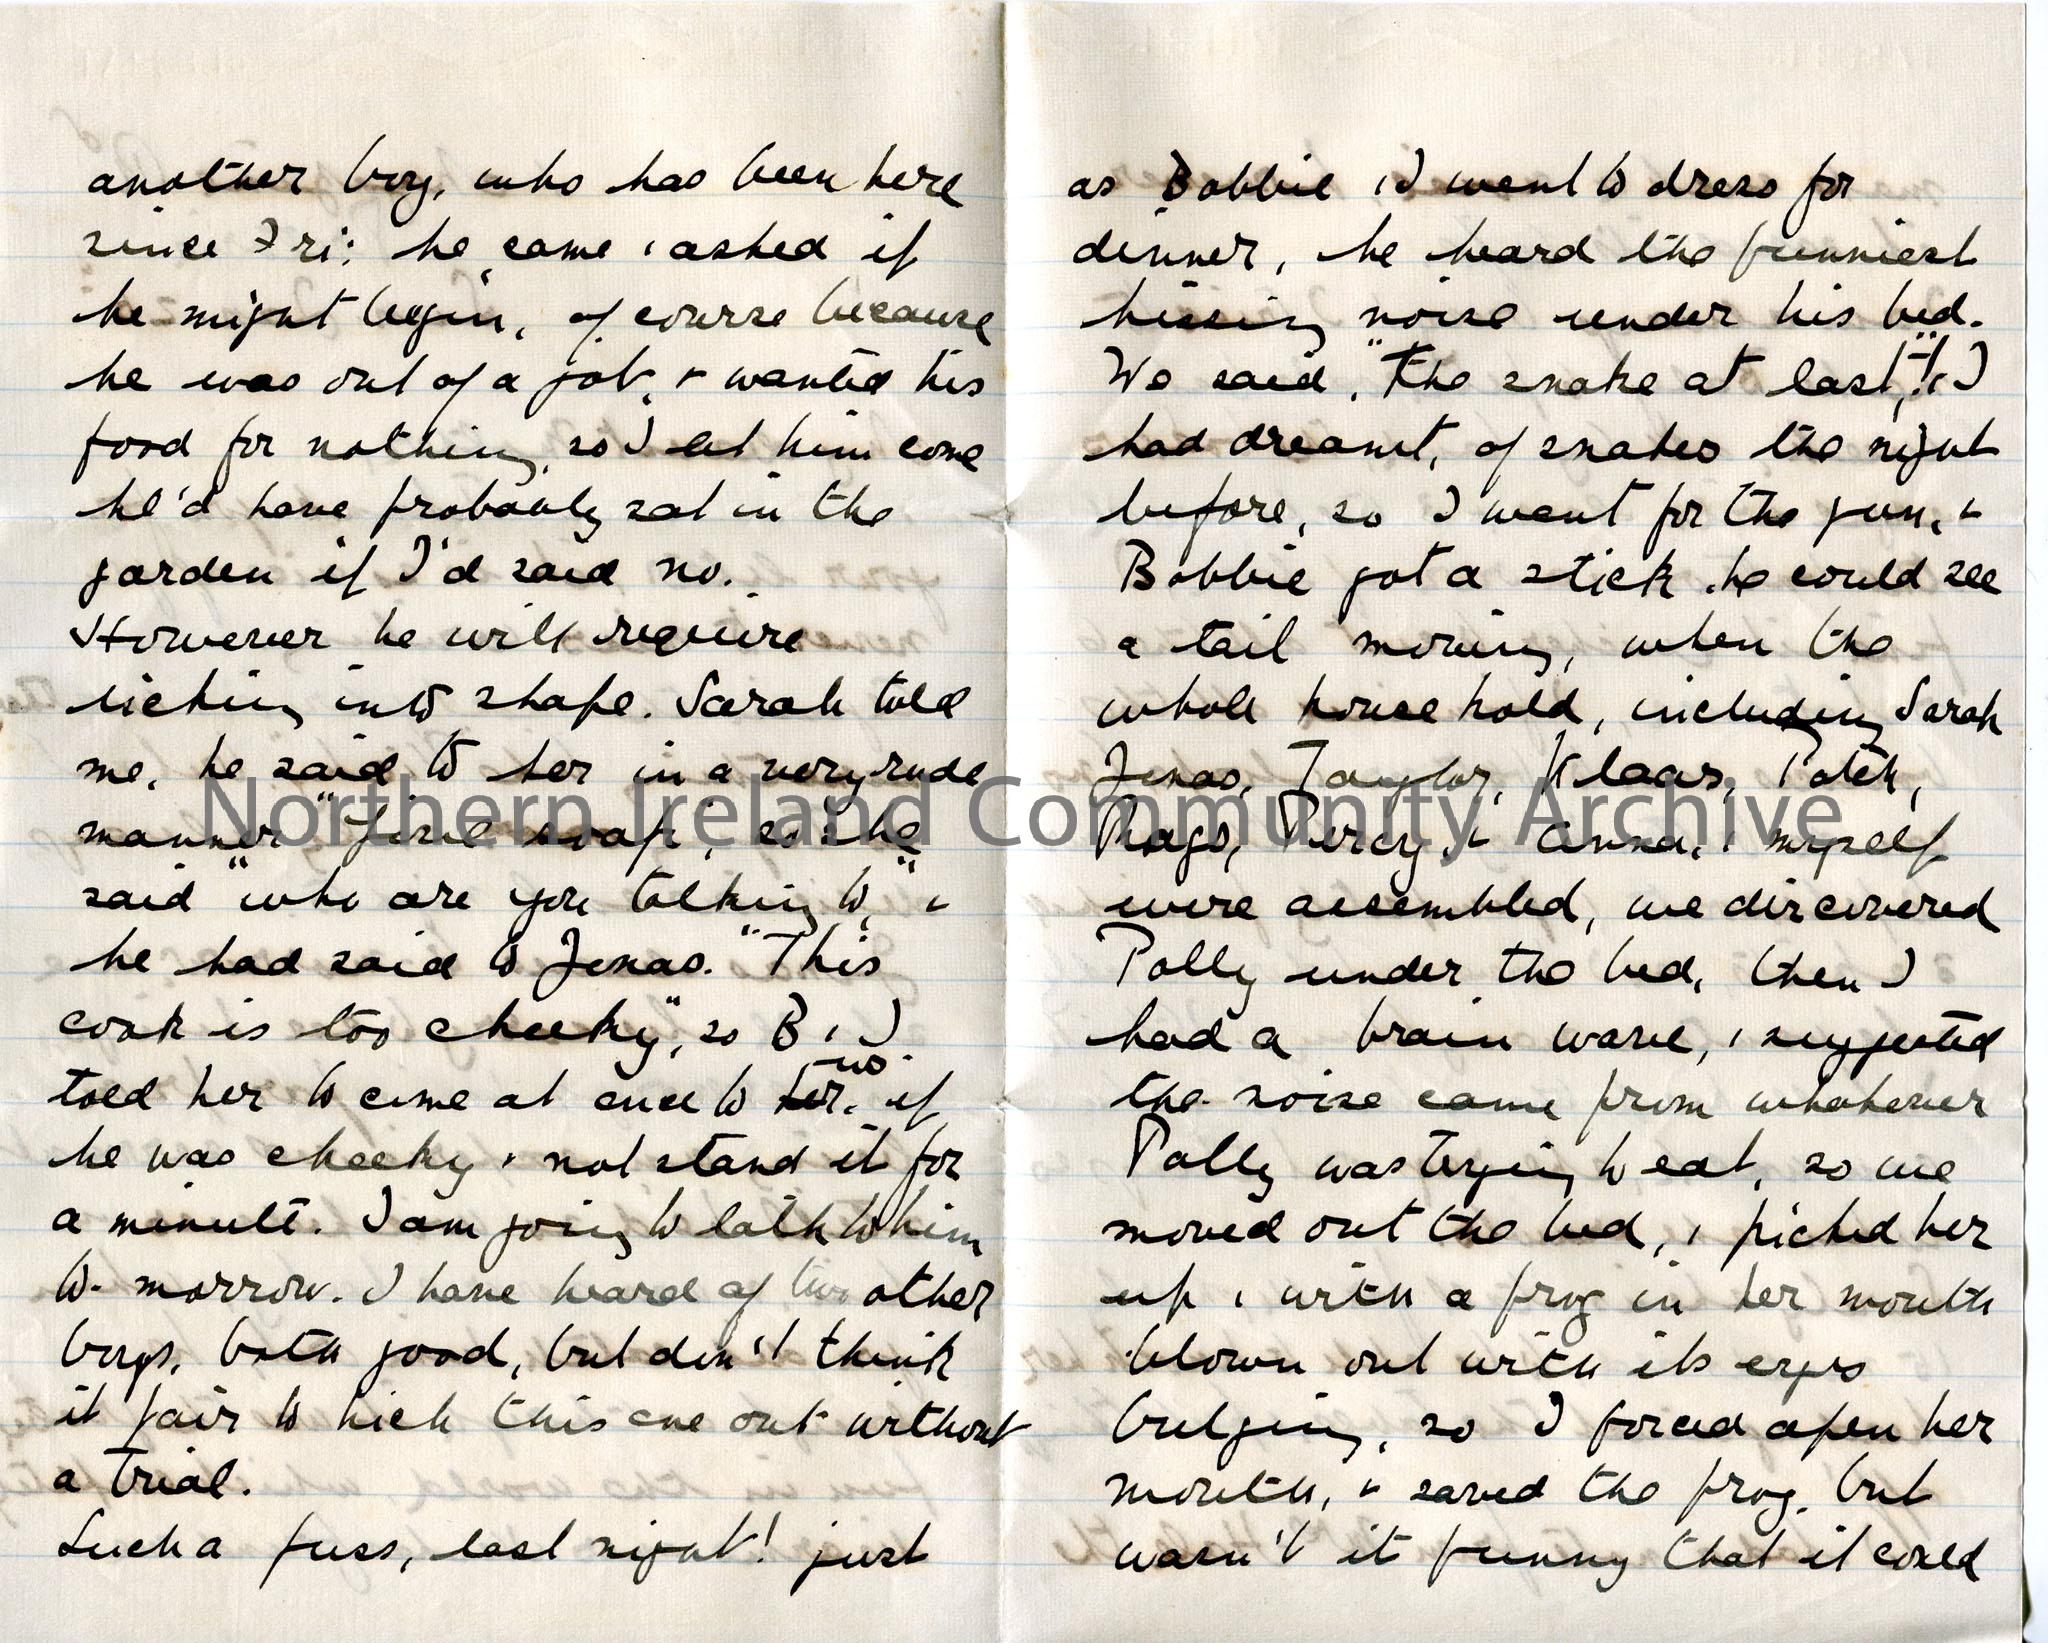 another boy, who has been here
since Fri: he came & asked if
he might begin, of course because
he was out of a job, & wanted his
food for nothing, so I let him come
he'd have probably sat in the
garden if I'd said no.
However he will require
licking into shape. Sarah told
me, he said to her in a very rude
manner "give soap", so she
said "who are you talking to", &
he had said to Jonas. "This
cook is too cheeky", so B & I
told her to come at once to us. if
he was cheeky & not stand it for
a minute. I am going to talk to him
to-morrow. I have heard of two other
boys, both good, but don't think
it fair to kick this one out without
a trial.
Such a fuss, last night! just
as Bobbie & I went to dress for
dinner, he heard the funniest
hissing noise under his bed.
We said, "The snake at last,"! & I
had dreamt, of snakes the night
before, so I went for the gun, &
Bobbie got a stick. he could see
a tail moving, when the
whole household, including Sarah
Jonas, Taylor, Klaas, Patch,
Rags, Percy, & Anna, & myself
were assembled, we discovered
Polly under the bed, then I
had a brain wave, & suggested
the noise came from whatever
Polly was trying to eat, so we
moved out the bed, & picked her
up & with a frog in her mouth
blown out with its eyes
bulging, so I forced open her
mouth, & saved the frog, but
wasn't it funny that it could
Northern Ireland Community Archive